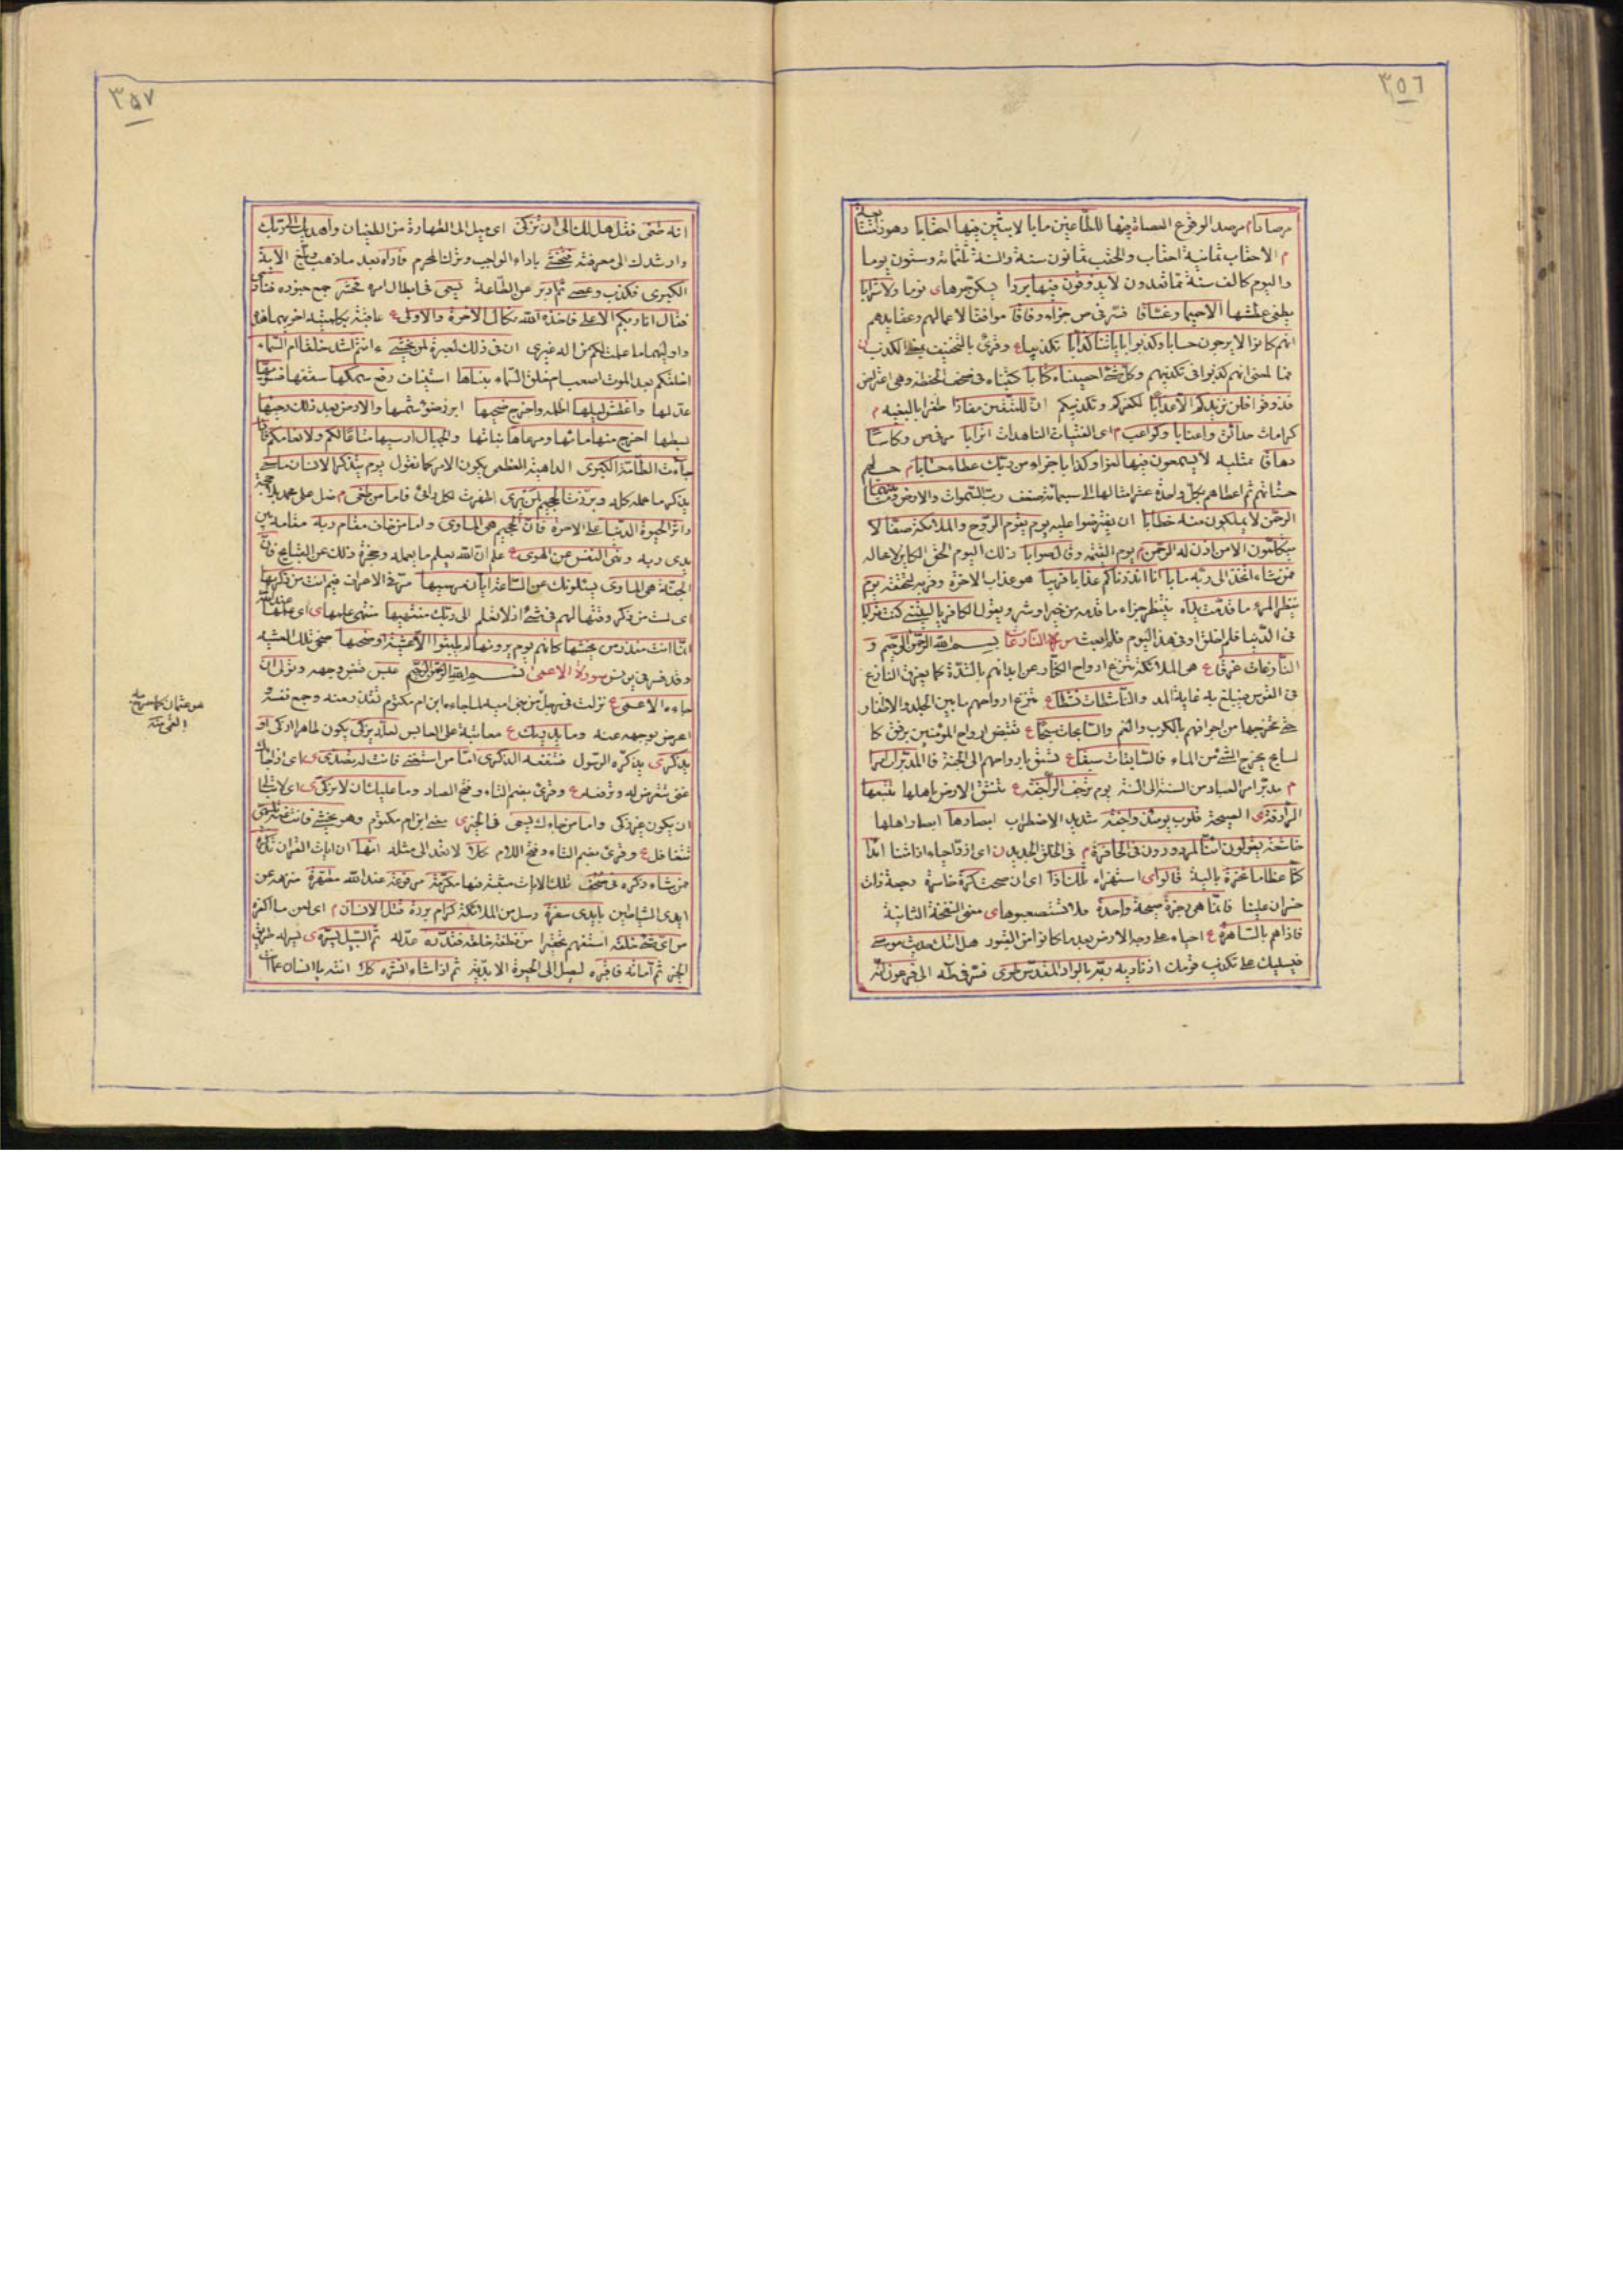 ٣٥٦
مرصادا م مرصد الوقوع العصاة فيها للطاغين مابا لابثين فيها احقابا دهور
م الاحقاب ثمانية احقاب والحقب ثمانون سنة والسنة ثلثمائة وستون يوما
واليوم كالف سنة مما تعدون لا يذوقون فيها بردا ولا شرابا
عطشها الا حميما وغساقا فسر في ص جزاء وفاقا موافقا لاعمالهم وعقايدهم
انهم كانوا لا يرجون حسابا وكذبوا باياتنا كذابا تكذيبا ع وقرئ بالتخفيف الكذب
لمعنى انهم كذبوا في تكذيبهم وكل شئ احصيناه كتابا كتبناه في صحف الحفظة وهي اعتراض
فذوقوا فلن نزيدكم الا عذابا لكفركم وتكذيبكم ان للمتقين مفازا ظفرا بالبغيه م
كرامات حدائق واعنابا وكواعب م اى الفتيات الناهدات اترابا مر في ص وكاسا
دهاقا ممتليه لا يسمعون فيها لغوا ولا كذابا جزاء من ربك عطاء حسابا م حسب لهم
حسناتهم ثم اعطاهم بكل واحدة عشر امثالها الى سبعمائة ضعف رب السموات والارض وما بينهما
الرحمن لا يملكون منه خطابا ان يعترضوا عليه يوم يقوم الروح والملائكة صفا لا
يتكلمون الا من اذن له الرحمن يوم القيمة وقال صوابا ذلك اليوم الحق الكاين لا محاله
فمن شاء اتخذ الى ربه مابا انا انذرناكم عذابا قريبا هو عذاب الاخرة وقربه لتحققه يوم
ينظر المرء ما قدمت يداه ينتظر جزاء ما قدمه من خير او شر ويقول الكافر يا ليتني كنت ترابا
في الدنيا فلم اخلق او في هذا اليوم فلم ابعث سورة النازعات بسم الله الرحمن الرحيم و
النازعات غرقا ع هي الملائكة تنزع ارواح الكفار عن ابدانهم بالشدة كما يغرق النازع
في القوس فيبلغ به غاية المد والناشطات نشطا ع تنزع ارواحهم ما بين الجلد والاظفار
حتى تخرجها من اجوافهم بالكرب والغم والسابحات سبحا ع تقبض ارواح المؤمنين برفق كا
لسابح يخرج الشئ من الماء فالسابقات سبقا ع تسبق بارواحهم الى الجنة فالمدبرات امرا
م يدبر امر العباد من السنة الى السنة يوم ترجف الراجفة ع تنشق الارض باهلها تتبعها
الرادفة ى الصيحة قلوب يومئذ واجفة شديد الاضطراب ابصارها ابصار اهلها
خاشعة يقولون ائنا لمردودون في الحافرة م في الخلق الجديد ائذا
كنا عظاما نخرة بالية قالوا ى استهزاء تلك اذا اى ان صحت كرة خاسرة رجعة ذات
خسران علينا فانما هي زجرة صيحة واحدة فلا تستصعبوها ى معنى النفخة الثانية
فاذا هم بالساهرة ع احياء على وجه الارض بعد ما كانوا في القبور هل اتيك حديث موسى
فيسليك على تكذيب قومك اذ ناديه ربه بالواد المقدس طوى فسر في طه الى فرعون انه
٣٥٧
انه طغى فقل هل لك الى ان تزكى اى ميل الى الطهارة من الطغيان واهديك الى ربك
وارشدك الى معرفته فتخشى باداء الواجب وترك المحرم فاراه بعد ما ذهب وبلغ الاية
الكبرى فكذب وعصى ثم ادبر عن الطاعة يسعى في ابطال امره فحشر جمع جنوده فنادى
فقال انا ربكم الاعلى فاخذه الله نكال الاخرة والاولى ع عاقبه بكلمتيه اخريهما هذه
واوليهما ما علمت لكم من اله غيرى ان في ذلك لعبرة لمن يخشى ءانتم اشد خلقا ام السماء
اخلقكم بعد الموت اصعب ام خلق السماء بناها استيناف رفع سمكها سقفها فسويها
عدلها واغطش ليلها اظلمه واخرج ضحيها ابرز ضوء شمسها والارض بعد ذلك دحيها
بسطها اخرج منها ماءها ومرعاها نباتها والجبال ارسيها متاعا لكم ولانعامكم فاذا
جاءت الطامة الكبرى الداهية العظمى يكون الامر كما نقول يوم يتذكر الانسان ما سعى
يذكر ما عمله كله وبرزت الجحيم لمن يرى اظهرت لكل رائ فاما من طغى م ضل على عمد
واثر الحيوة الدنيا على الاخرة فان الجحيم هي الماوى واما من خاف مقام ربه مقامه بين
يدى ربه ونهى النفس عن الهوى ع علم ان الله يعلم ما يعمله ويحجزه ذلك عن القبايح فان
الجنة هي الماوى يسئلونك عن الساعة ايان مرسيها مر في الاعراف فيم انت من ذكريها
اى لست من ذكر وقتها لهم في شئ اذ لا تعلم الى ربك منتهيها منتهى علمها ى اى علمها عند الله
انما انت منذر من يخشيها كانهم يوم يرونها لم يلبثوا الا عشية او ضحيها ضحى تلك العشية
وقد فسر في يونس سورة الاعمى بسم الله الرحمن الرحيم عبس قبض وجهه وتولى ان
جاءه الاعمى ع نزلت في رجل من بني امية لما جاءه ابن ام مكتوم تقذر منه وجمع نفسه
اعرض بوجهه عنه وما يدريك ع معاتبة على العابس لعله يزكى يكون طاهرا ازكى او
يذكر ى يذكره الرسول فتنفعه الذكرى اما من استغنى فانت له تصدى ى اى اذا جاءك
غنى تتعرض له وترفعه ع وقرئ بضم التاء وفتح الصاد وما عليك ان لا يزكى ى اى لا تبالى
ان يكون غير زكى واما من جاءك يسعى في الخير ى يعني ابن ام مكتوم وهو يخشى فانت عنه تلهى
تتغافل ع وقرئ بضم التاء وفتح اللام كلا لا تعد الى مثله انها ان ايات القران تذكرة
فمن شاء ذكره في صحف تلك الايات مثبتة فيها مكرمة مرفوعة عند الله مطهرة منزهة عن
ايدى الشياطين بايدى سفرة رسل من الملائكة كرام بررة قتل الانسان م اى لعن ما اكفره
من اى شئ خلقه استفهم تحقيرا من نطفة خلقه فقدره عدله ثم السبيل يسره ى يسر له طريق
الخير ثم اماته فاقبره ليصل الى الحيوة الابدية ثم اذا شاء انشره كلا انته يا انسان عما انت